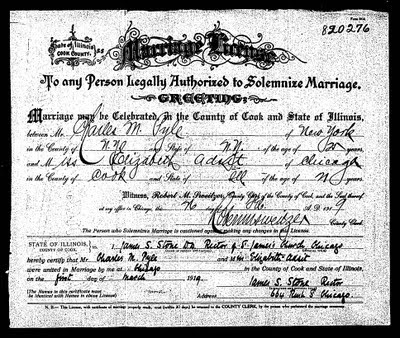 820276
State of Illinois,
COOK COUNTY.
ss
Marriage License
To any Person Legally Authorized to Solemnize Marriage.
GREETING:
Marriage may be Celebrated, in the County of Cook and State of Illinois,
between Mr. Charles M. Pyle of New York
in the County of N.Y. and State of N.Y. of the age of years,
and Miss Elizabeth of Chicago
in the County of Cook and State of Ill of the age of years.
Witness, Robert M. Sweitzer, County Clerk of the County of Cook, and the Seal thereof,
at my office in Chicago, this A. D. 191
Robert M Sweitzer
County Clerk.
The Person who Solemnizes Marriage is cautioned against making any changes in this License.
STATE OF ILLINOIS,
COUNTY OF COOK.
ss. I, James S. Stone D.D. Rector of St. James's Church Chicago
hereby certify that Mr Charles M. Pyle and Miss Elizabeth
were united in Marriage by me at Chicago in the County of Cook and State of Illinois,
on the first day of March 1919
James S. Stone Rector
(The Names in this certificate must
be identical with Names in above License)
664 Rush St Chicago.